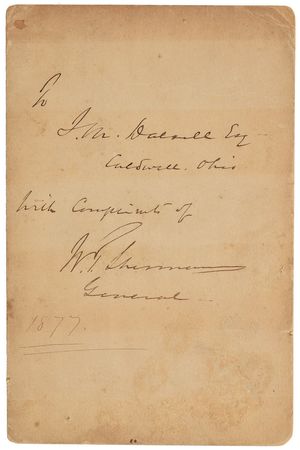 To
J. M. Dalzell Esq
Caldwell. Ohio
with Compliments of
W. T. Sherman
General
1877.